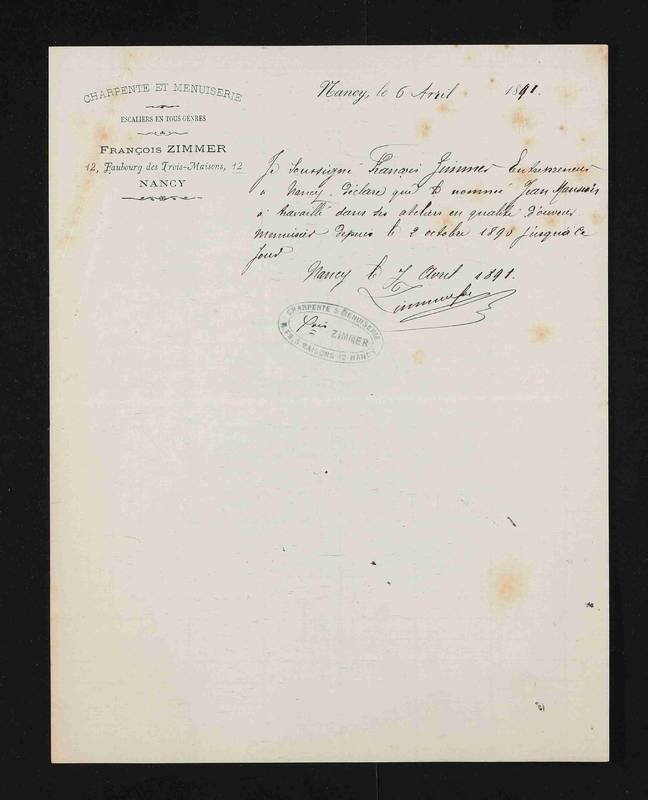 CHARPENTE ET MENUISERIE
ESCALIERS EN TOUS GENRES
FRANÇOIS ZIMMER
12, Faubourg des Trois-Maisons, 12
NANCY
Nancy, le 6 Avril 1891.
Je Soussigné François Zimmer Entrepreneur
a Nancy, déclare que le nommé Jean
a travaillé dans ses ateliers en qualité d'ouvrier
menuisier depuis le 2 octobre 1890 jusqu'à ce
jour
Nancy le 7 Avril 1891.
Zimmer
CHARPENTE & MENUISERIE
Fçois ZIMMER
MAISONS 12 NANCY